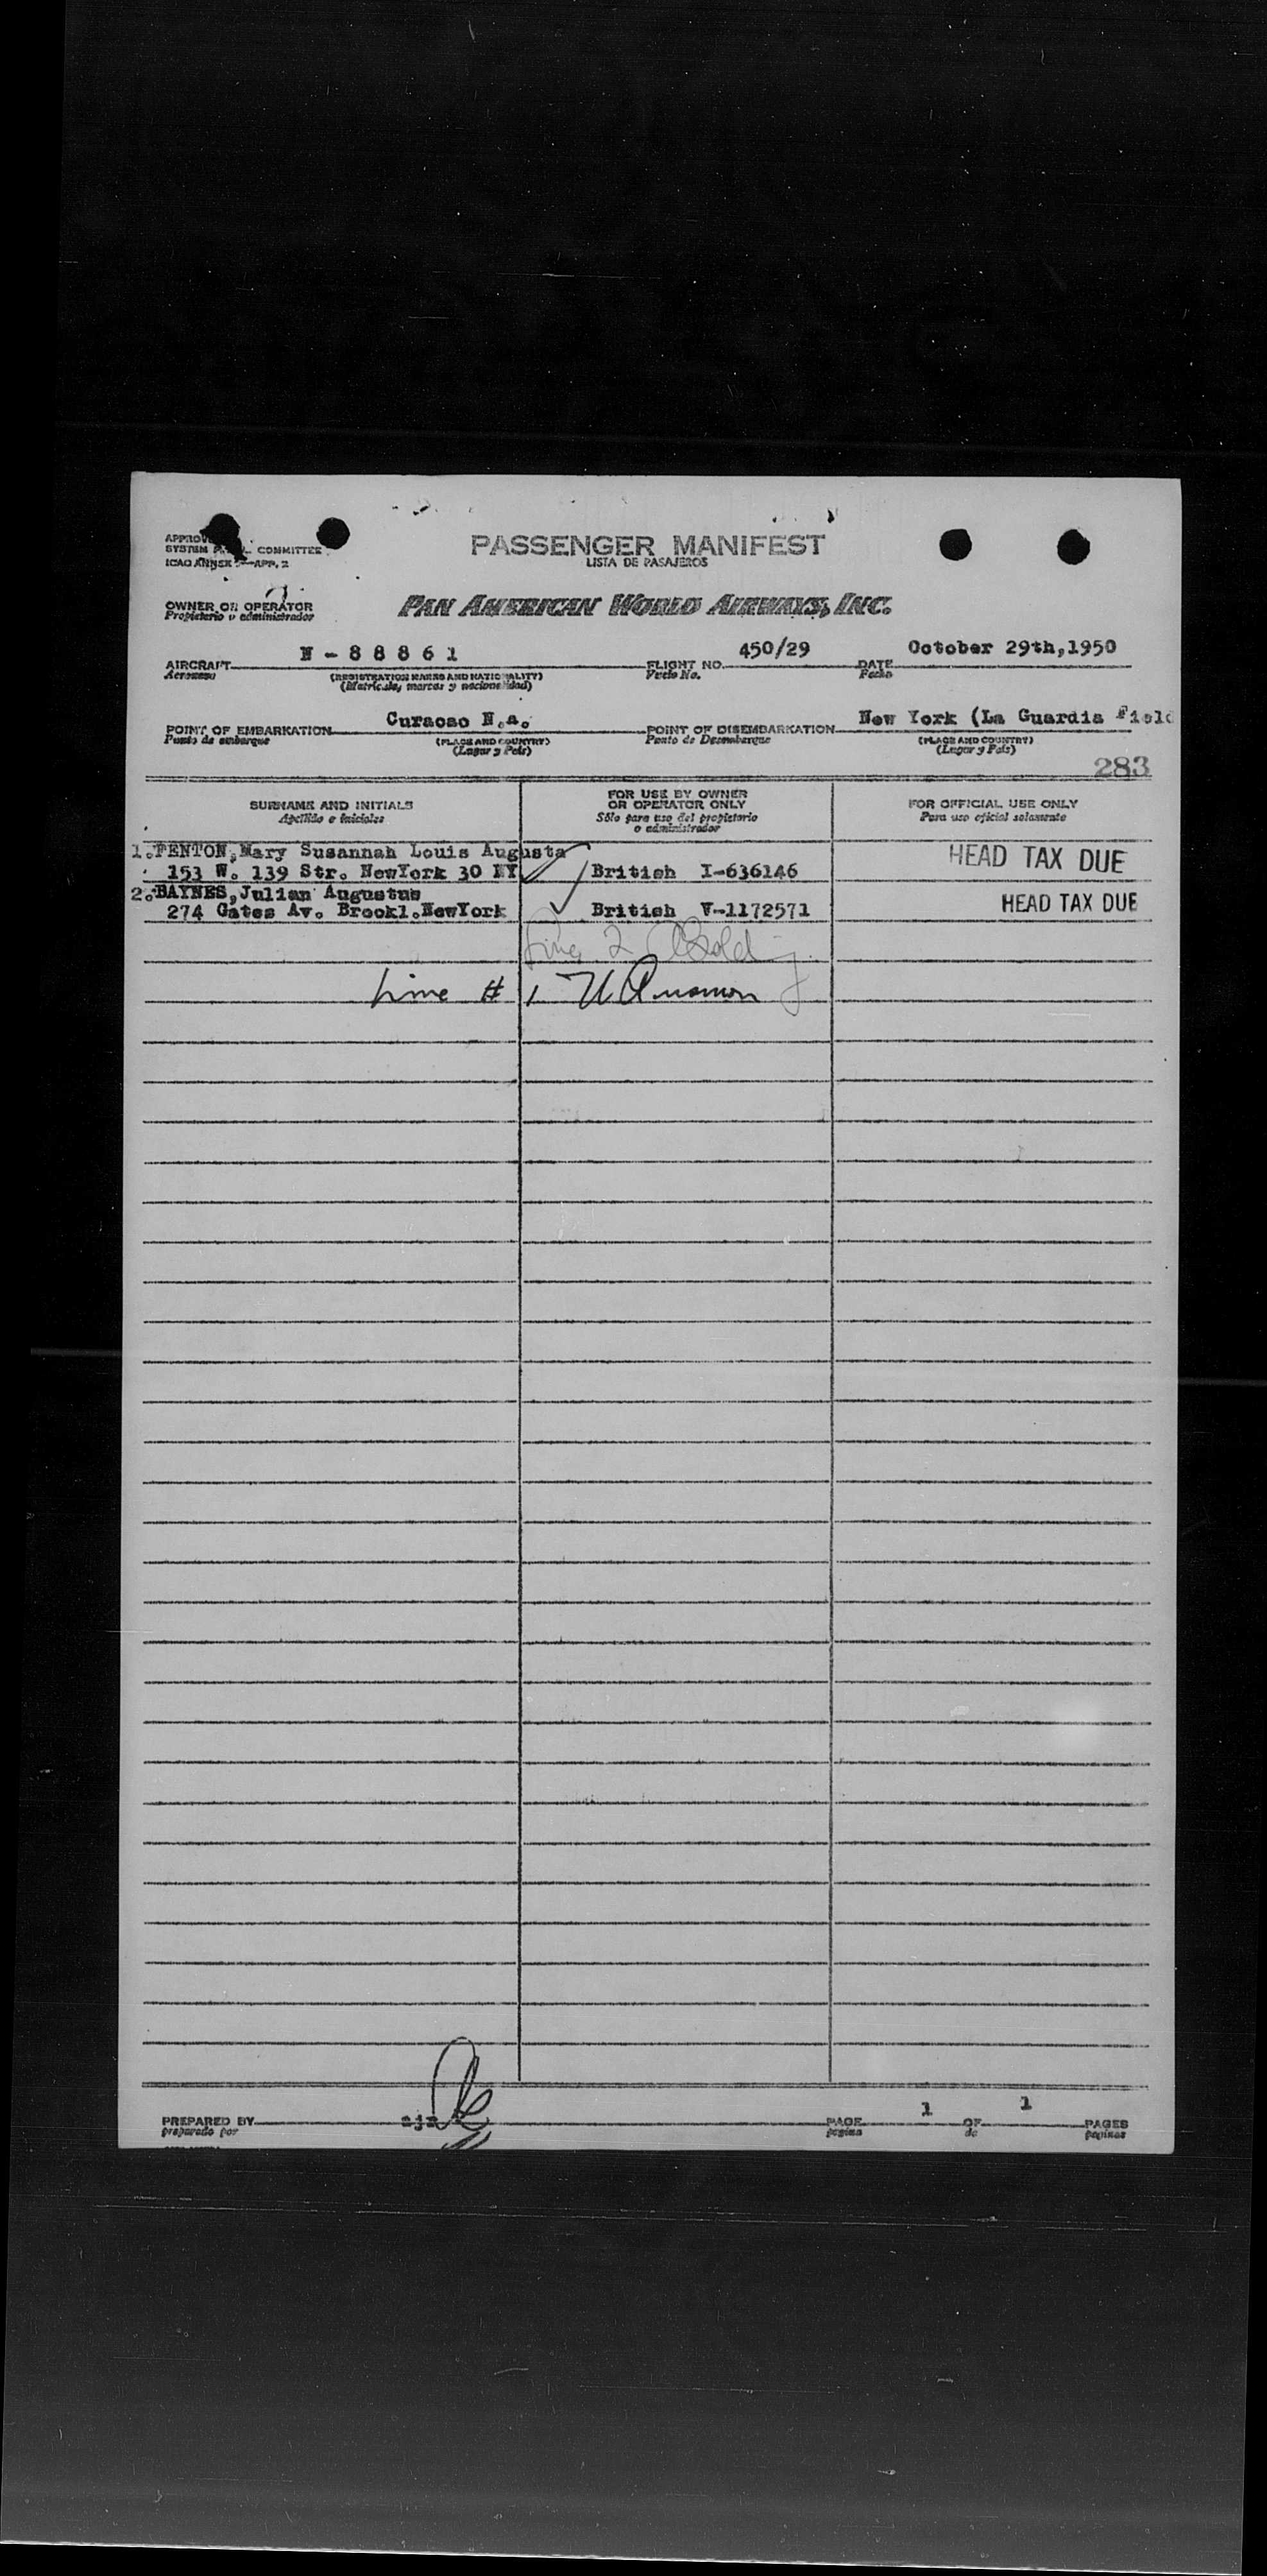 PASSENGER MANIFEST
LISTA DE PASAJEROS
COMMITTEE
ICAO ANNEX
APP. 2
OWNER OR OPERATOR
Propietario o administrador
PAN AMERICAN WORLD AIRWAYS, INC.
AIRCRAFT N-88861 FLIGHT NO. 450/29 DATE October 29th,1950
Aeronave (REGISTRATION MARKS AND NATIONALITY) Vuelo No. Fecha
(Matrícula, marcas y nacionalidad)
POINT OF EMBARKATION Curacao N.A. POINT OF DISEMBARKATION New York (La Guardia Field
Punto de embarque (PLACE AND COUNTRY) Punto de Desembarque (PLACE AND COUNTRY)
(Lugar y País) (Lugar y País)
283
SURNAME AND INITIALS FOR USE BY OWNER OR OPERATOR ONLY FOR OFFICIAL USE ONLY
Apellido e iniciales Sólo para uso del propietario o administrador Para uso oficial solamente
1.FENTON,Mary Susannah Louis Augusta HEAD TAX DUE
153 W. 139 Str. NewYork 30 NY British I-636146
2.BAYNES,Julian Augustus HEAD TAX DUE
274 Gates Av. Brookl.NewYork British V-1172571
Line 2
Line # 1
PREPARED BY PAGE 1 OF 1 PAGES
preparado por pagina de paginas